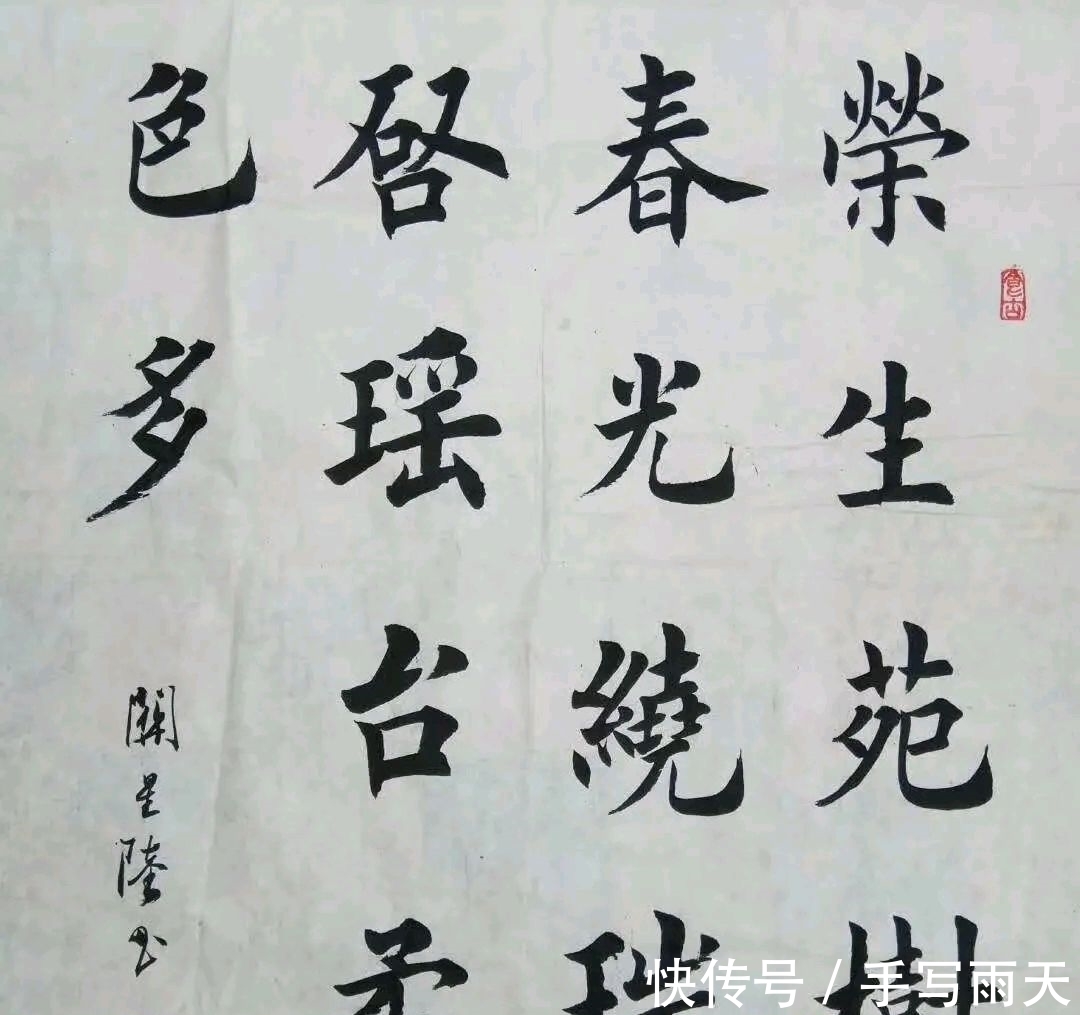 榮生苑樹
春光繞瑞
啓瑶台
色多
關星陸书
快传号 / 手写雨天